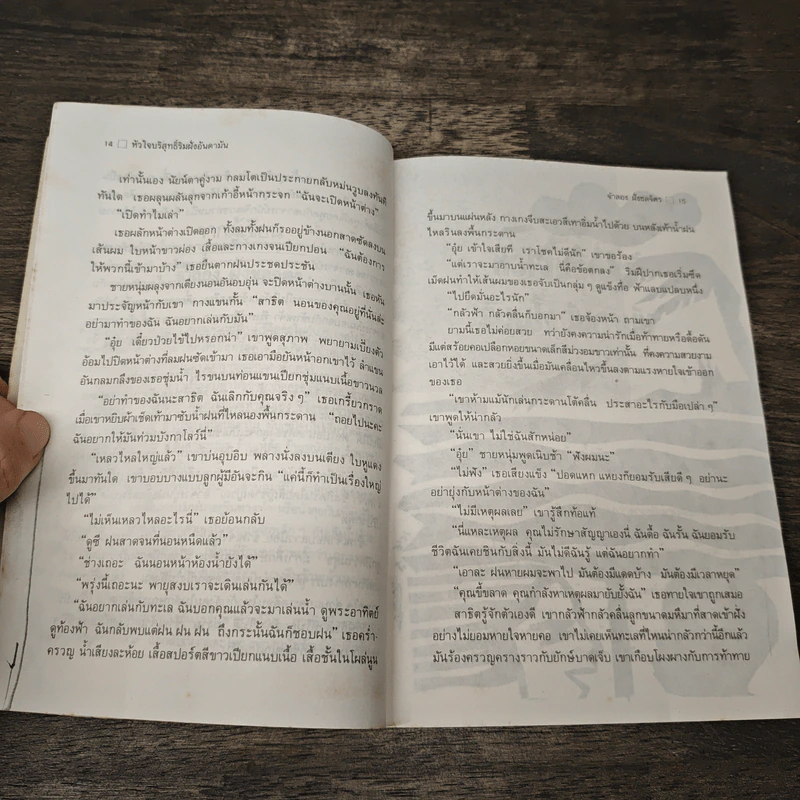 14 หัวใจบริสุทธิ์ริมฝั่งอันดามัน
เท่านั้นเอง นัยน์ตาคู่งาม กลมโตเป็นประกายกลับหม่นวูบลงทันที
ทันใด เธอผลุนผลันลุกจากเก้าอี้หน้ากระจก “ฉันจะเปิดหน้าต่าง”
“เปิดทำไมเล่า”
เธอผลักหน้าต่างเปิดออก ทั้งลมทั้งฝนก็รออยู่ข้างนอกสาดซัดลงบน
เส้นผม ใบหน้าขาวผ่อง เสื้อและกางเกงจนเปียกปอน “ฉันต้องการ
ให้พวกนี้เข้ามาบ้าง” เธอยืนตากฝนประชดประชัน
ชายหนุ่มผลุงจากเตียงนอนอันอบอุ่น จะปิดหน้าต่างบานนั้น เธอหัน
มาประจัญหน้ากับเขา กางแขนกั้น “สาธิต นอนของคุณอยู่ที่นั่นล่ะ
อย่ามาทำของฉัน ฉันอยากเล่นกับมัน”
“อุ๊ย เดี๋ยวป่วยไข้ไปหรอกน่า” เขาพูดสุภาพ พยายามเบี่ยงตัว
อ้อมไปปิดหน้าต่างที่ลมฝนซัดเข้ามา เธอเอามือยันหน้าอกเขาไว้ ลำแขน
อันกลมกลึงของเธอชุ่มน้ำ ไรขนบนท่อนแขนเปียกชุ่มแนบเนื้อขาวนวล
“อย่าทำของฉันนะสาธิต ฉันเลิกกับคุณจริงๆ” เธอเกรี้ยวกราด
เมื่อเขาหยิบผ้าเช็ดเท้ามาซับน้ำฝนที่ไหลนองพื้นกระดาน “ถอยไปนะคะ
ฉันอยากให้มันท่วมบังกาโลว์นี่”
“เหลวไหลใหญ่แล้ว” เขาบ่นอุบอิบ พลางนั่งลงบนเตียง ใบหูแดง
ขึ้นมาทันใด เขาบอบบางแบบลูกผู้มีอันจะกิน “แค่นี้ก็ทำเป็นเรื่องใหญ่
ไปได้”
“ไม่เห็นเหลวไหลอะไรนี่” เธอย้อนกลับ
“ดูซี ฝนสาดจนที่นอนหนืดแล้ว”
“ช่างเถอะ ฉันนอนหน้าห้องน้ำยังได้”
“พรุ่งนี้เถอะนะ พายุสงบเราจะเดินเล่นกันได้”
“ฉันอยากเล่นกับทะเล ฉันบอกคุณแล้วจะมาเล่นน้ำ ดูพระอาทิตย์
ดูท้องฟ้า ฉันกลับพบแต่ฝน ฝน ฝน ถึงกระนั้นฉันก็ชอบฝน” เธอคร่ำ-
ครวญ น้ำเสียงละห้อย เสื้อสปอร์ตสีขาวเปียกแนบเนื้อ เสื้อชั้นในโผล่นูน
จำลอง ฝั่งชลจิตร 15
ขึ้นมาบนแผ่นหลัง กางเกงจีบสะเอวสีเทาอิ่มน้ำไปด้วย บนหลังเท้าน้ำฝน
ไหลรินลงพื้นกระดาน
“อุ๋ย เข้าใจเสียที เราโชคไม่ดีนัก” เขาขอร้อง
“แต่เราจะมาอาบน้ำทะเล นี่คือข้อตกลง” ริมฝีปากเธอเริ่มซีด
เม็ดฝนทำให้เส้นผมของเธอจับเป็นกลุ่มๆ ดูแข็งทื่อ ฟ้าแลบแปลบหนึ่ง
“ไปยึดมันอะไรนัก”
“กลัวฟ้า กลัวคลื่นก็บอกมา” เธอจ้องหน้า ถามเขา
ยามนี้เธอไม่ค่อยสวย ทว่ายังคงความน่ารักเมื่อท้าทายหรือดื้อดัน
มีแต่สร้อยคอเปลือกหอยขนาดเล็กสีม่วงอมขาวเท่านั้น ที่คงความสวยงาม
เอาไว้ได้ และสวยยิ่งขึ้นเมื่อมันเคลื่อนไหวขึ้นลงตามแรงหายใจเข้าออก
ของเธอ
“เขาห้ามแม้นักเล่นกระดานโต้คลื่น ประสาอะไรกับมือเปล่าๆ”
เขาพูดให้น่ากลัว
“นั่นเขา ไม่ใช่ฉันสักหน่อย”
“อุ๋ย” ชายหนุ่มพูดเนิบช้า “ฟังผมนะ”
“ไม่ฟัง” เธอเสียงแข็ง “ปอดแหก แหยงก็ยอมรับเสียดีๆ อย่านะ
อย่ายุ่งกับหน้าต่างของฉัน”
“ไม่มีเหตุผลเลย” เขารู้สึกท้อแท้
“นี่แหละเหตุผล คุณไม่รักษาสัญญาเองนี่ ฉันดื้อ ฉันรั้น ฉันยอมรับ
ชีวิตฉันเคยชินกับสิ่งนี้ มันไม่ดีฉันรู้ แต่ฉันอยากทำ”
“เอาละ ฝนหายผมจะพาไป มันต้องมีแดดบ้าง มันต้องมีเวลาหยุด”
“คุณขี้ขลาด คุณกำลังหาเหตุผลมายับยั้งฉัน” เธอทายใจเขาถูกเสมอ
สาธิตรู้จักตัวเองดี เขากลัวฟ้ากลัวคลื่นลูกขนาดมหึมาที่สาดเข้าฝั่ง
อย่างไม่ยอมหายใจหายคอ เขาไม่เคยเห็นทะเลที่ไหนน่ากลัวกว่านี้อีกแล้ว
มันร้องครวญครางราวกับยักษ์บาดเจ็บ เขาเกือบโผงผางกับการท้าทาย